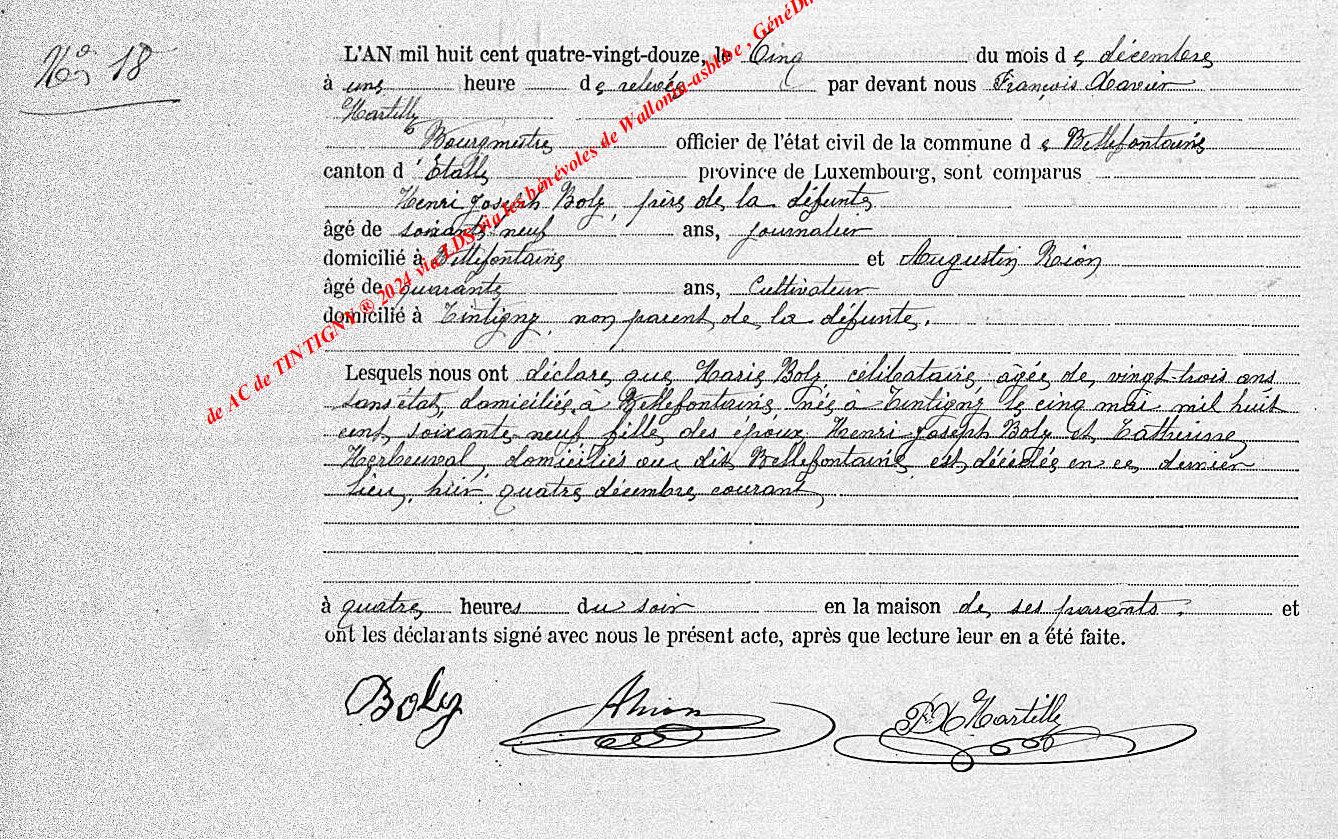 No 18
L'AN mil huit cent quatre-vingt-douze, le Cinq du mois de décembre
à une heure de relevée par devant nous François Xavier
Martilly
Bourgmestre officier de l'état civil de la commune de Bellefontaine
canton d'Etalle province de Luxembourg, sont comparus
Henri Joseph Boly, père de la défunte
âgé de soixante neuf ans, journalier
domicilié à Bellefontaine et Augustin Rion
âgé de quarante ans, Cultivateur
domicilié à Tintigny, non parent de la défunte.
Lesquels nous ont déclaré que Marie Boly, célibataire, âgée de vingt-trois ans
sans état, domiciliée à Bellefontaine, née à Tintigny le cinq mai mil huit
cent soixante-neuf fille des époux Henri-Joseph Boly et Catherine
Herbeuval, domiciliés au dit Bellefontaine est décédée en ce dernier
lieu, hier, quatre décembre courant
à quatre heures du soir en la maison de ses parents. et
ont les déclarants signé avec nous le présent acte, après que lecture leur en a été faite.
Boly ARion FX Martilly
de AC de TINTIGNY ® 2024 via LDS via les bénévoles de Wallonia-asbl.be, GénéDin